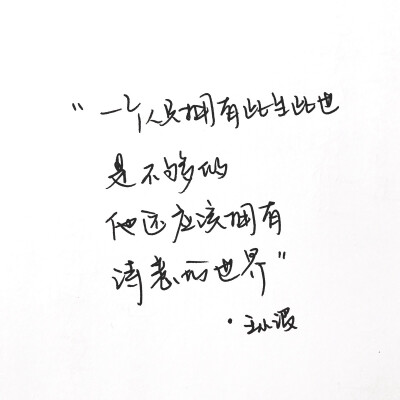 “一个人只拥有此生此世
是不够的
他还应该拥有
诗意的世界”
·王小波